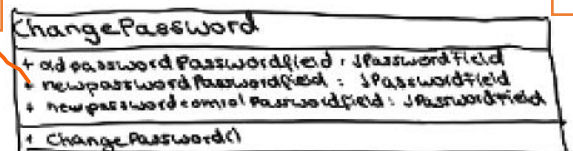 ChangePassword
+ oldpasswordPasswordfield : JPasswordField
+ newpasswordPasswordfield : JPasswordField
+ newpasswordcontrolPasswordfield : JPasswordField
+ ChangePassword()